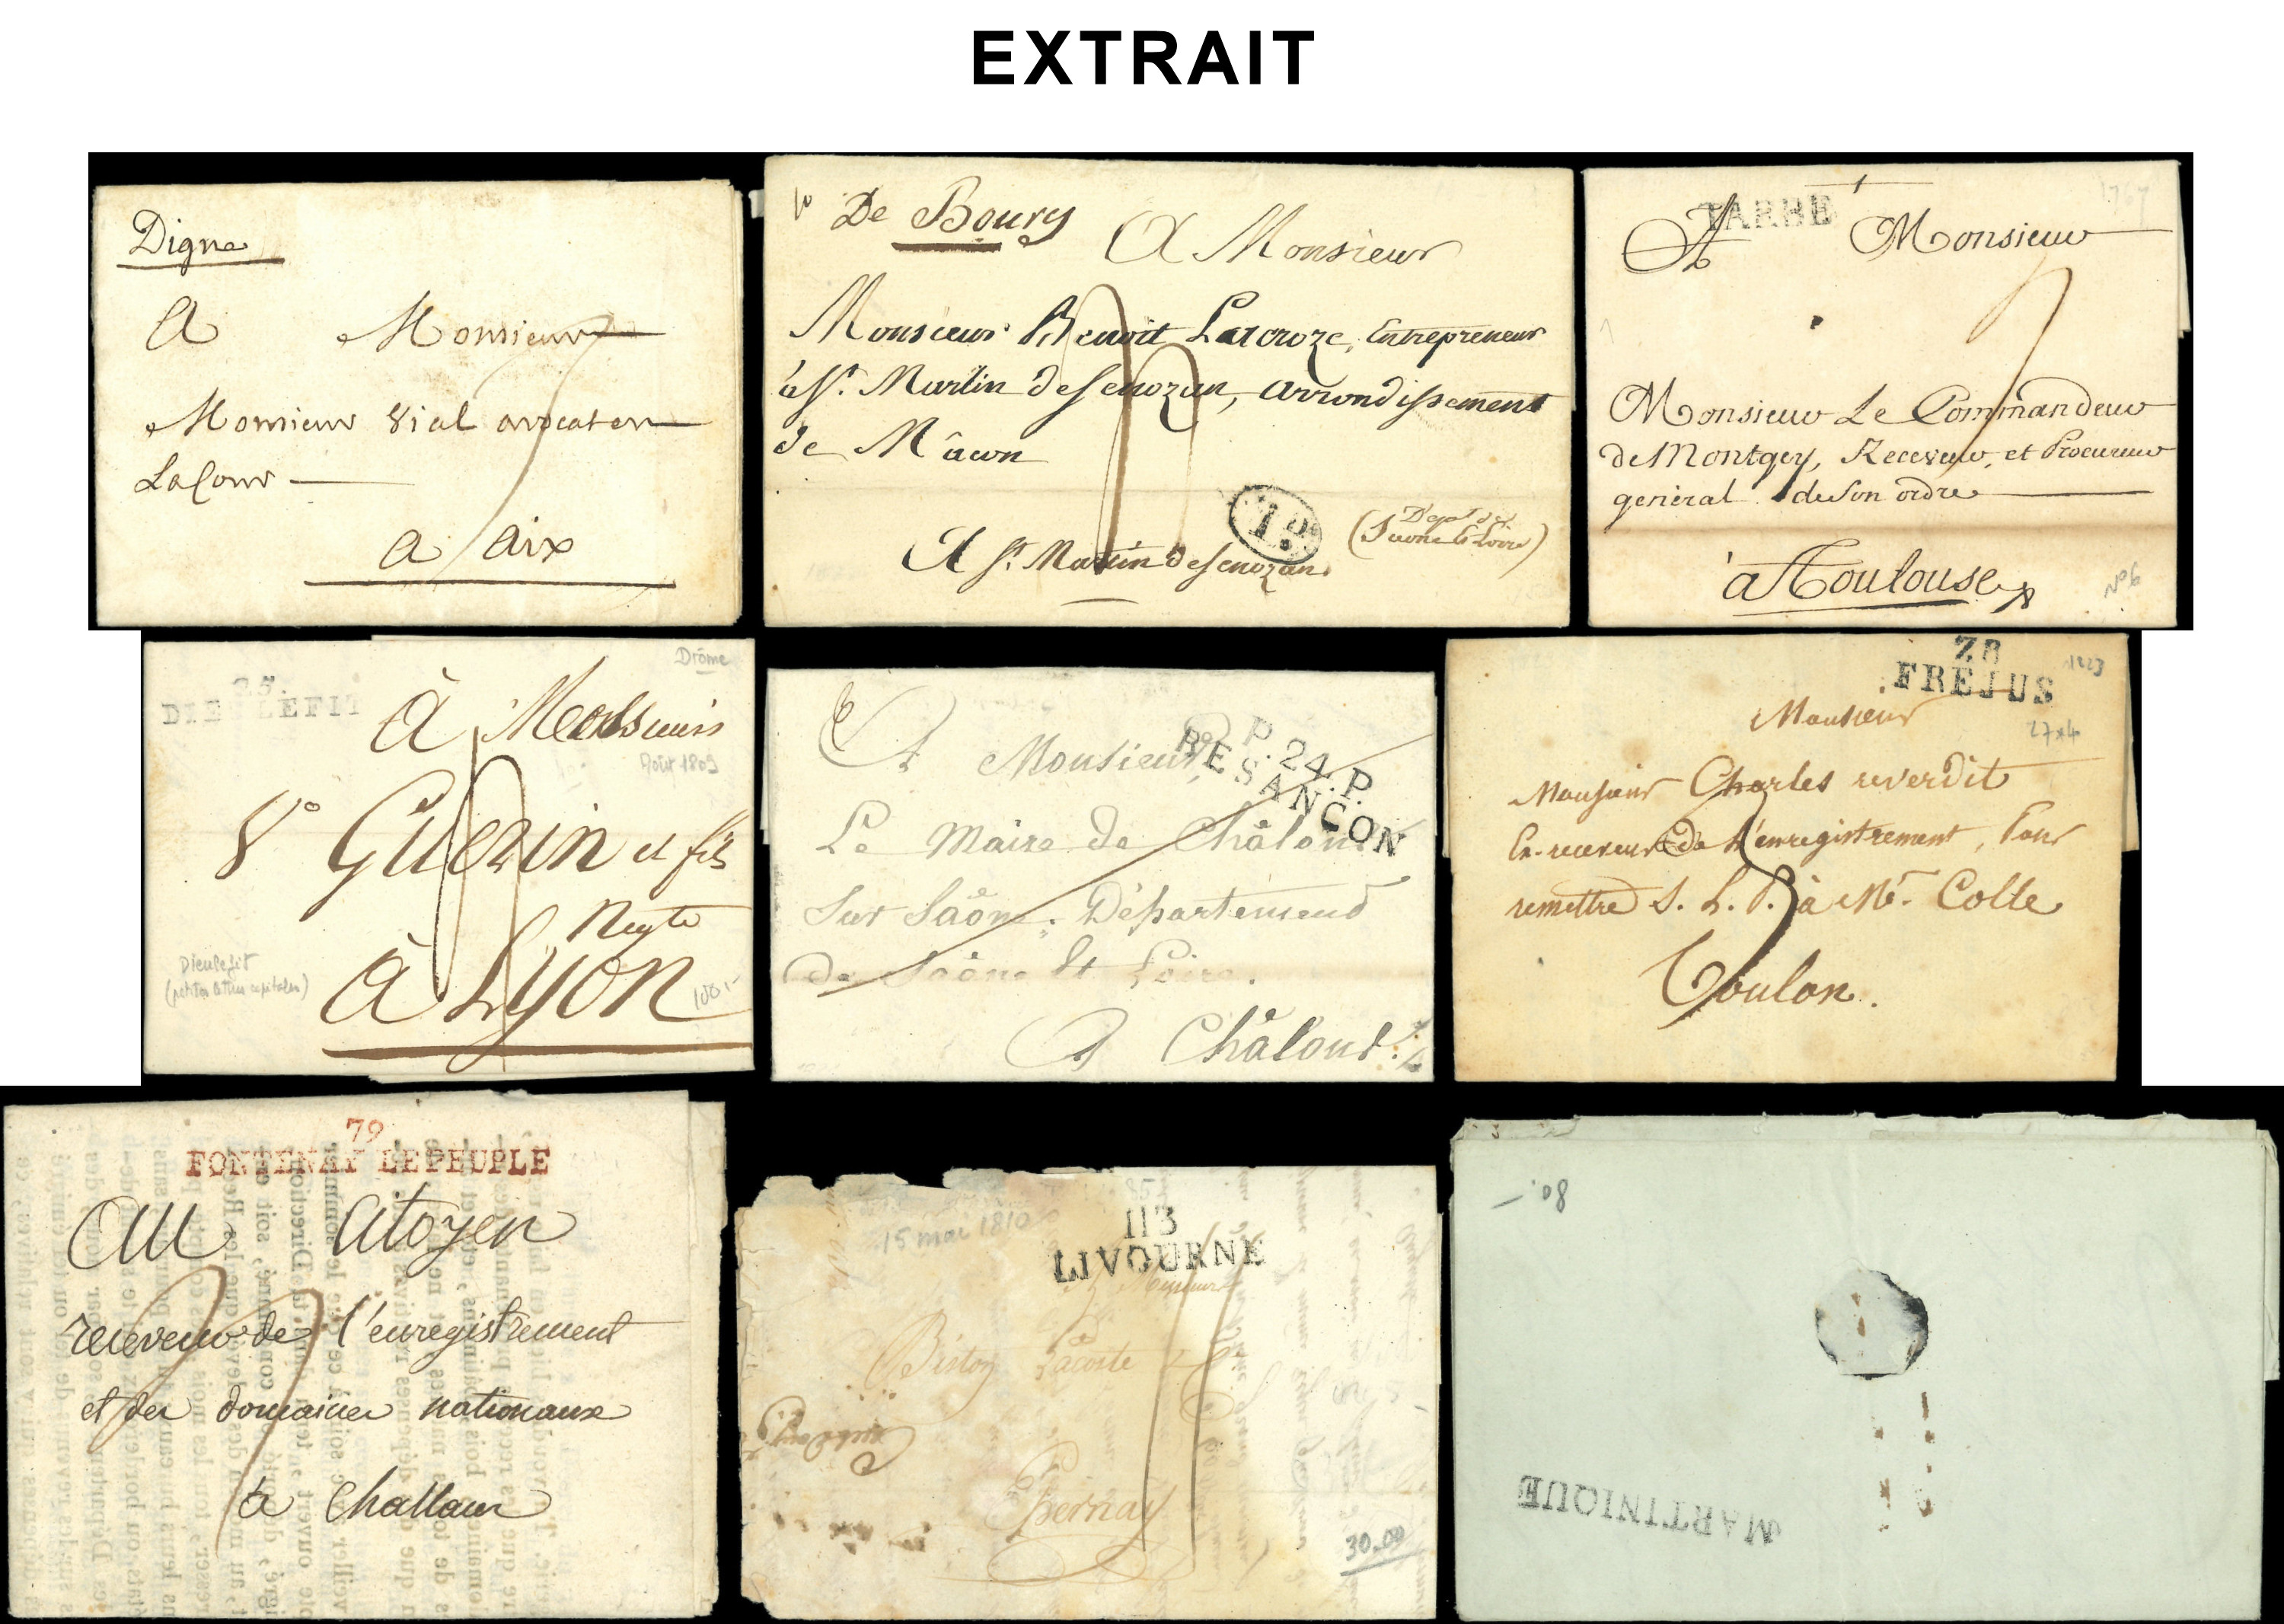 EXTRAIT
Digne
A Monsieur
Monsieur Vial avocat en
La Cour
a aix
De Bourg
A Monsieur
Monsieur Benoit Lacroze, Entrepreneur
à St. Martin de Senozan, arrondissement
de Mâcon
1D
A St. Martin de Senozan
(Dept de
Saone & Loire)
TARBE
1767
A Monsieur
Monsieur Le Commandeur
de Montgey, Receveur, et Procureur
general de son ordre
à Toulouse
N°6
Drôme
25.
DIEULEFIT
à Messieurs
Août 1809
Ve Guerin et fils
Negts
Dieulefit
à Lyon
100.-
P. 24. P.
BESANÇON
A Monsieur
Le Maire de Châlons
Sur Saône. Département
de Saône et Loire.
A Châlons
78
FREJUS
1823
27x4
Monsieur
Monsieur Charles reverdit
Ex-receveur de l'enregistrement, Pour
remettre S. L. P. à Mr. Colle
Toulon.
79
FONTENAY LE PEUPLE
Au Citoyen
receveur de l'enregistrement
et des domaines nationaux
à Challans
15 mai 1810
113
LIVOURNE
Messieurs
Lacoste
Epernay
30.00
80.-
MARTINIQUE